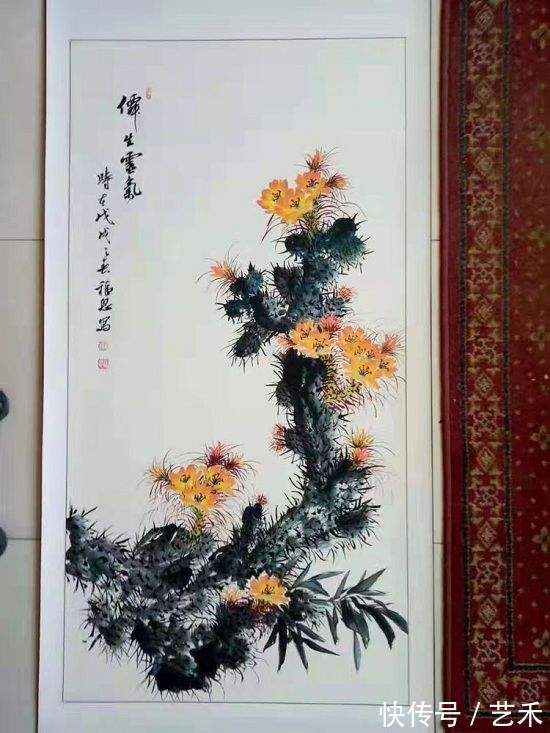 生靈氣
時在戊戌之春福恩寫
快传号 / 艺禾